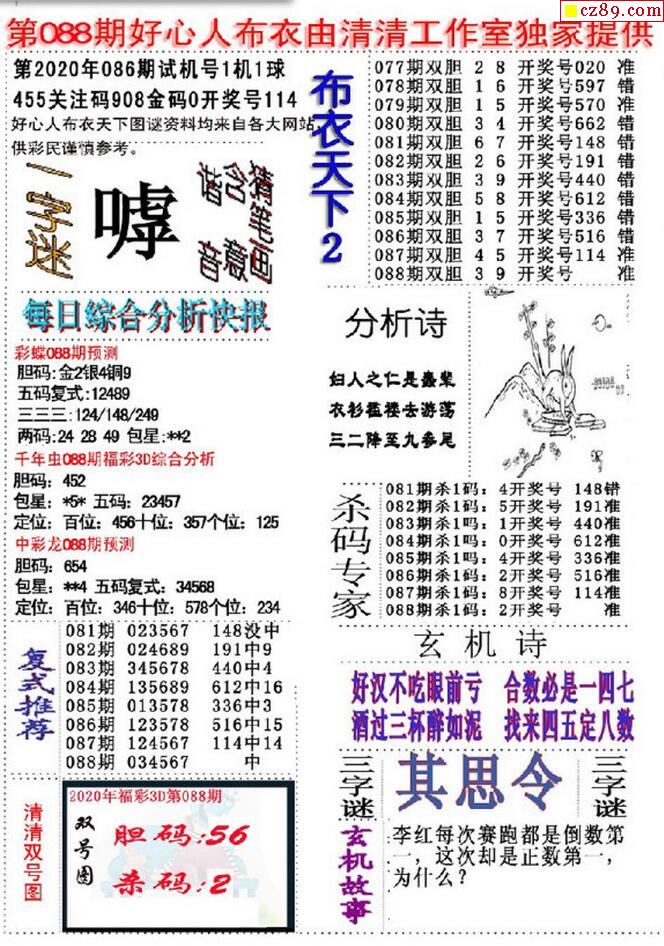 cz89.com
第088期好心人布衣由清清工作室独家提供
第2020年086期试机号1机1球
455关注码908金码0开奖号114
好心人布衣天下图谜资料均来自各大网站,
供彩民谨慎参考。
一字迷
嘑
猜笔画
含意
谐音
布衣天下2
077期双胆 2 8 开奖号020 准
078期双胆 1 6 开奖号597 错
079期双胆 1 5 开奖号570 准
080期双胆 3 4 开奖号662 错
081期双胆 6 7 开奖号148 错
082期双胆 2 6 开奖号191 错
083期双胆 3 9 开奖号440 错
084期双胆 5 8 开奖号612 错
085期双胆 1 5 开奖号336 错
086期双胆 3 7 开奖号516 错
087期双胆 4 5 开奖号114 准
088期双胆 3 9 开奖号 准
每日综合分析快报
彩蝶088期预测
胆码:金2银4铜9
五码复式:12489
三三三:124/148/249
两码:24 28 49 包星:**2
千年虫088期福彩3D综合分析
胆码: 452
包星: *5* 五码: 23457
定位: 百位: 456十位: 357个位: 125
中彩龙088期预测
胆码: 654
包星: **4 五码复式: 34568
定位: 百位: 346十位: 578个位: 234
分析诗
妇人之仁是蠢辈
衣衫褴褛去游荡
三二降至九参尾
杀码专家
081期杀1码: 4开奖号 148错
082期杀1码: 5开奖号 191准
083期杀1吗: 1开奖号 440准
084期杀1码: 0开奖号 612准
085期杀1吗: 4开奖号 336准
086期杀1码: 2开奖号 516准
087期杀1码: 8开奖号 114准
088期杀1码: 2开奖号 准
复式推荐
081期 023567 148没中
082期 024689 191中9
083期 345678 440中4
084期 135689 612中16
085期 013578 336中3
086期 123578 516中15
087期 124567 114中14
088期 034567 中
玄机诗
好汉不吃眼前亏 合数必是一四七
酒过三杯醉如泥 找来四五定八数
三字谜
其思令
三字谜
清清双号图
2020年福彩3D第088期
双号图
胆码:56
杀码:2
玄机故事
李红每次赛跑都是倒数第
一，这次却是正数第一，
为什么?